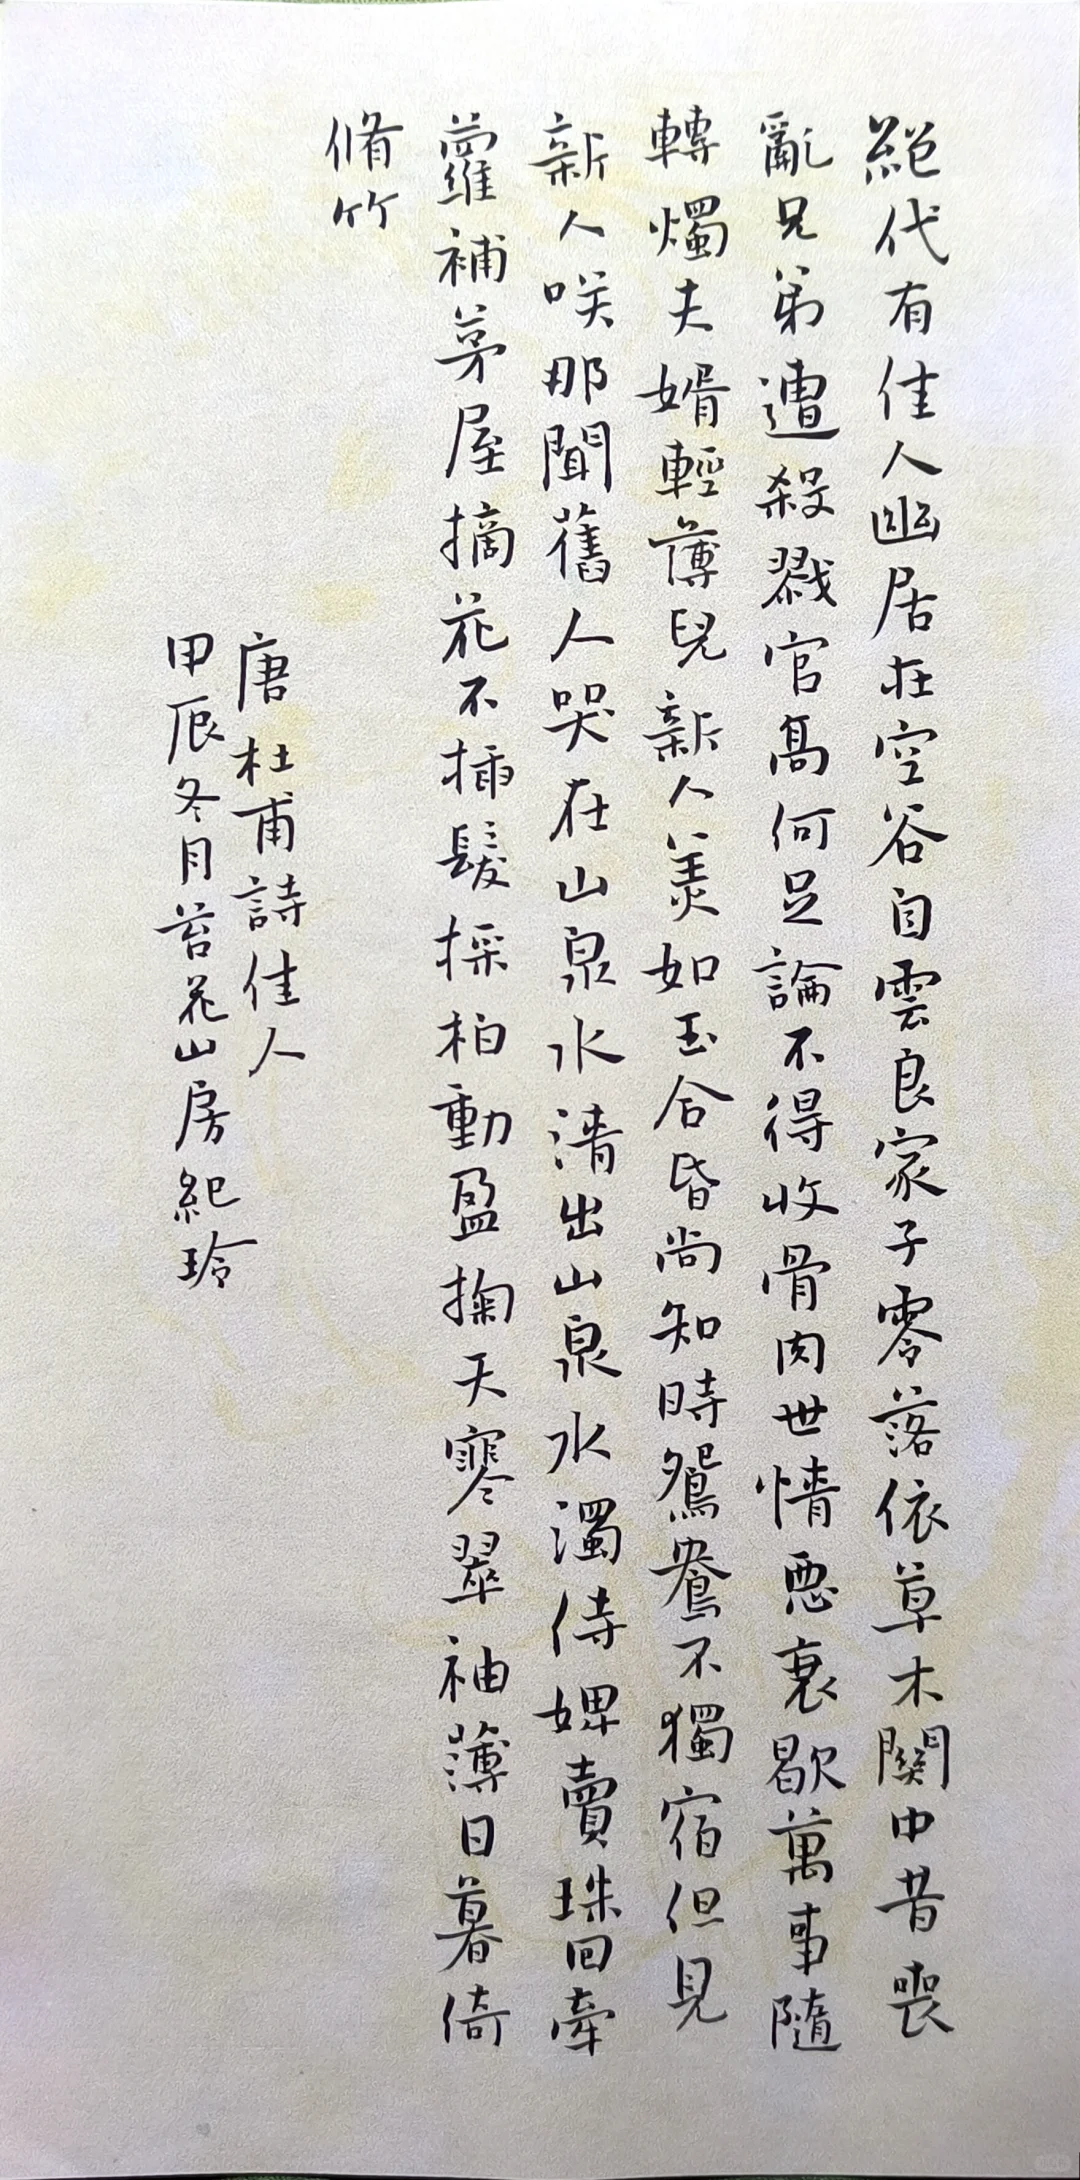 絕代有佳人幽居在空谷自雲良家子零落依草木關中昔喪
亂兄弟遭殺戮官高何足論不得收骨肉世情惡衰歇萬事隨
轉燭夫婿輕薄兒新人美如玉合昏尚知時鴛鴦不獨宿但見
新人咲那聞舊人哭在山泉水清出山泉水濁侍婢賣珠回牽
蘿補茅屋摘花不插髮採柏動盈掬天寒翠袖薄日暮倚
脩竹
唐杜甫詩佳人
甲辰冬月苔花山房紀玲